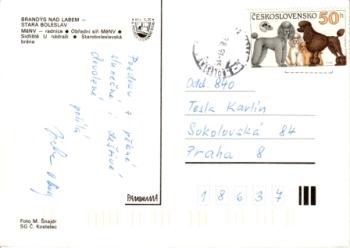 BRANDÝS NAD LABEM –
STARÁ BOLESLAV
MěNV – radnice ● Obřadní síň MěNV ●
Sídliště U nádraží ● Staroboleslavská
brána
Pozdrav z pěkné
slunečné i deštivé
dovolené
posílá
PANORAMA
Foto M. Šnajdr
SG Č. Kostelec
ČESKOSLOVENSKO 50h
Odd. 840
Tesla Karlín
Sokolovská 84
Praha 8
1 8 6 3 7